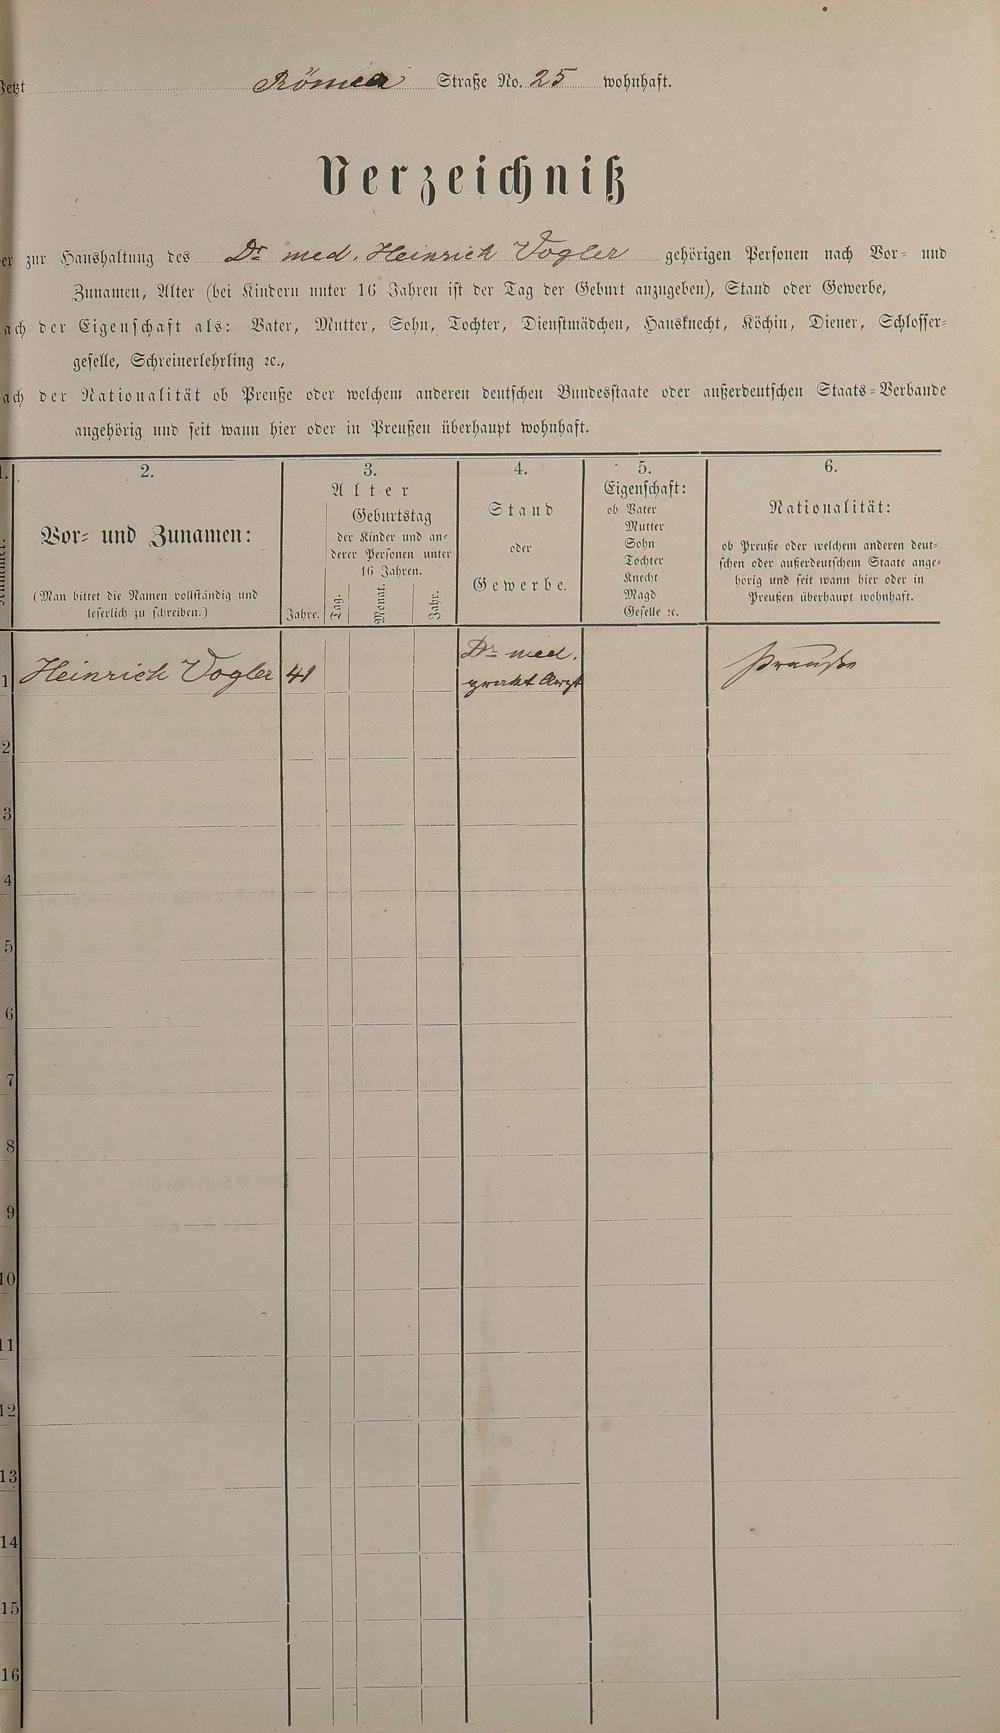 Jetzt Römer Straße No. 25 wohnhaft.
Verzeichniß
er zur Haushaltung des Dr med. Heinrich Vogler gehörigen Personen nach Vor- und
Zunamen, Alter (bei Kindern unter 16 Jahren ist der Tag der Geburt anzugeben), Stand oder Gewerbe,
ach der Eigenschaft als: Vater, Mutter, Sohn, Tochter, Dienstmädchen, Hausknecht, Köchin, Diener, Schlosser-
geselle, Schreinerlehrling ꝛc.,
ach der Nationalität ob Preuße oder welchem anderen deutschen Bundesstaate oder außerdeutschen Staats-Verbande
angehörig und seit wann hier oder in Preußen überhaupt wohnhaft.
1.
Nummer.
2.
Vor- und Zunamen:
(Man bittet die Namen vollständig und
leserlich zu schreiben.)
3.
Alter
Geburtstag
der Kinder und an-
derer Personen unter
16 Jahren.
Jahre. Tag. Monat. Jahr.
4.
Stand
oder
Gewerbe.
5.
Eigenschaft:
ob Vater
Mutter
Sohn
Tochter
Knecht
Magd
Geselle ꝛc.
6.
Nationalität:
ob Preuße oder welchem anderen deut-
schen oder außerdeutschem Staate ange-
hörig und seit wann hier oder in
Preußen überhaupt wohnhaft.
1 Heinrich Vogler 41 Dr med. Preuße
prakt Arzt
2
3
4
5
6
7
8
9
10
11
12
13
14
15
16